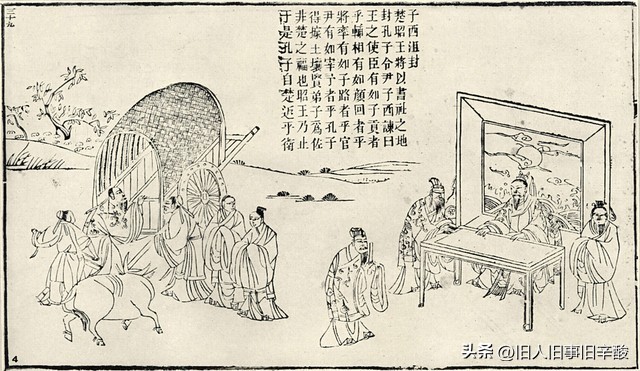 子西沮封
楚昭王將以書社之地
封孔子令尹子西諫曰
王之使臣有如子貢者
乎輔相有如顏回者乎
將率有如子路者乎官
尹有如宰予者乎孔子
得據土壤賢弟子為佐
非楚之福也昭王乃止
于是孔子自楚返乎衛
4
头条 @旧人旧事旧辛酸